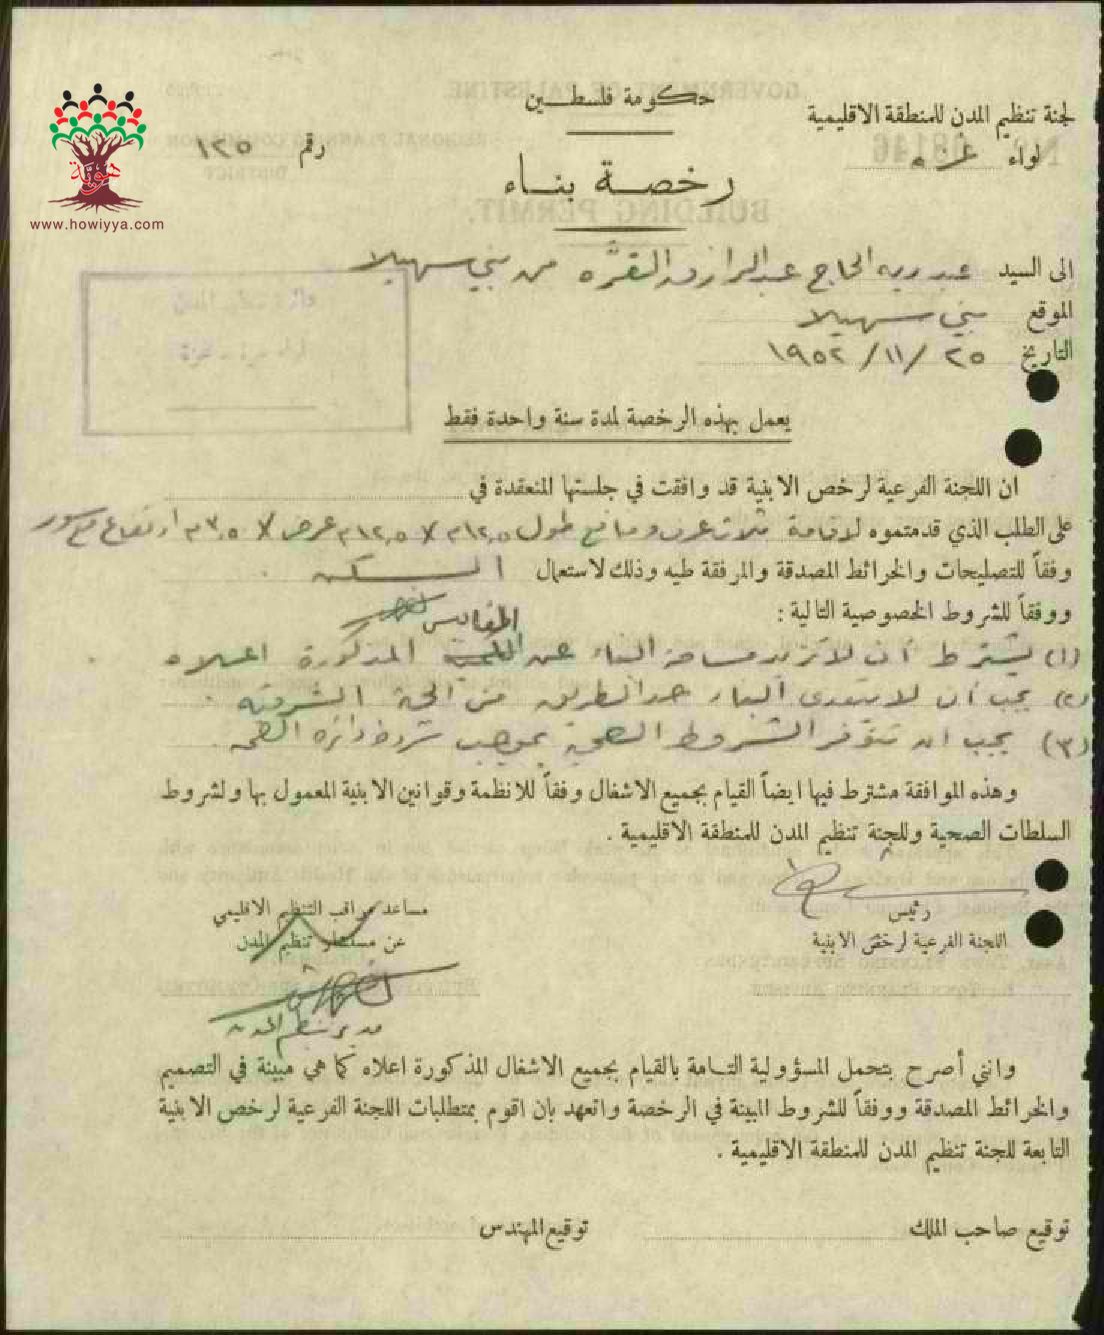 حكومة فلسطين
لجنة تنظيم المدن للمنطقة الاقليمية
لواء غزه
رقم ١٢٥
هوية
www.howiyya.com
رخصة بناء
الى السيد عبد ربه الحاج عبد الرازق القرّه من بني سهيلا
الموقع بني سهيلا
التاريخ ٢٥ /١١/ ١٩٥٢
يعمل بهذه الرخصة لمدة سنة واحدة فقط
ان اللجنة الفرعية لرخص الابنية قد وافقت في جلستها المنعقدة في
على الطلب الذي قدمتموه لاقامة ثلاث غرف ومنافع طول ١٢,٥م x ١٢,٥م عرض x ٣,٥م ارتفاع مع سور
وفقاً للتصليحات والخرائط المصدقة والمرفقة طيه وذلك لاستعمال السكن .
ووفقاً للشروط الخصوصية التالية :
المقاييس
(١) يشترط أن لا تزيد مساحة البناء عن المذكورة اعلاه
(٢) يجب أن لا يتعدى البناء حد الطريق من الجهة الشرقية .
(٣) يجب ان تتوفر الشروط الصحية بموجب شروط دائرة الصحة .
وهذه الموافقة مشترط فيها ايضاً القيام بجميع الاشغال وفقاً للانظمة وقوانين الابنية المعمول بها ولشروط
السلطات الصحية وللجنة تنظيم المدن للمنطقة الاقليمية .
رئيس
اللجنة الفرعية لرخص الابنية
مساعد مراقب التنظيم الاقليمي
عن مستشار تنظيم المدن
مدير تنظيم المدن
وانني أصرح بتحمل المسؤولية التامة بالقيام بجميع الاشغال المذكورة اعلاه كما هي مبينة في التصميم
والخرائط المصدقة ووفقاً للشروط المبينة في الرخصة واتعهد بان اقوم بمتطلبات اللجنة الفرعية لرخص الابنية
التابعة للجنة تنظيم المدن للمنطقة الاقليمية .
توقيع صاحب الملك
توقيع المهندس